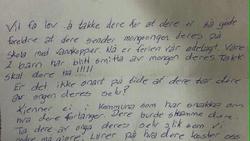 Vil få lov å takke dere for at dere er så gode
foreldre at dere sender mongoungen deres på
skola med vandkopper. Nå er ferien vår ødelagt. Våre
2 barn har blitt smitta av mongen deres. Takk
skal dere ha!!!!!
Er det ikke snart på tide at dere tar dure
av ongen deres selv?
Kjenner ei i kommuna som har snakka om
hva dere forlanger. Dere burde skamme dere.
Ta dere av onga deres selv slik som vi
andre må gjøre. Lurer på hva dere koster oss